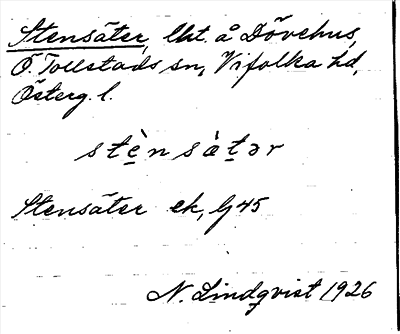 Stensäter, lht. å Dövehus,
Ö. Tollstads sn, Vifolka hd,
Österg. l.
stè̱nsàt̲ər
Stensäter ek, G 45
N. Lindqvist 1926